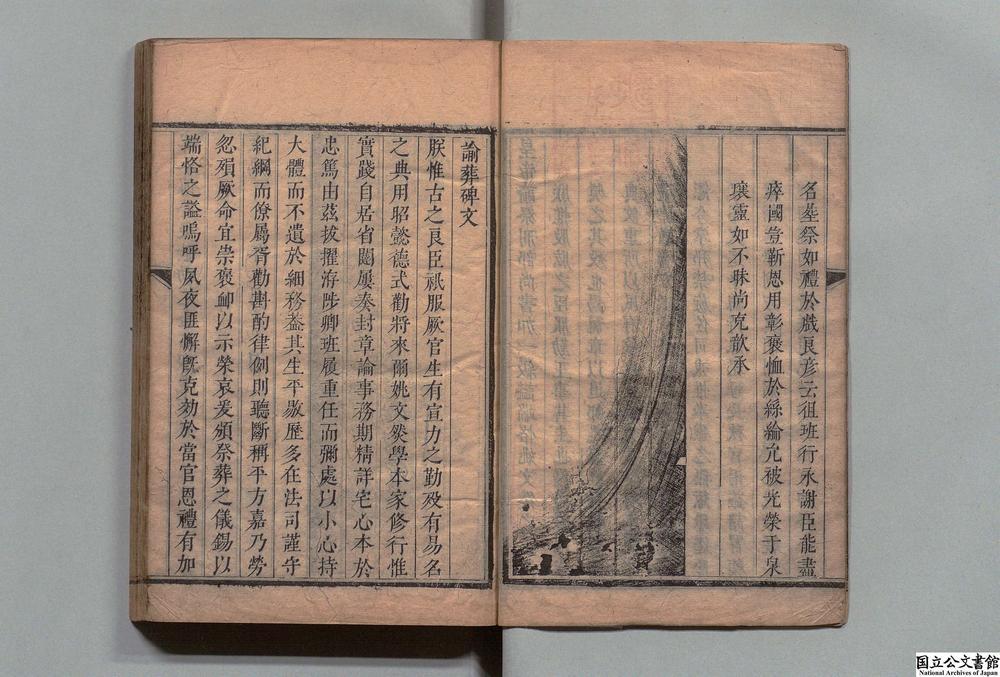 名葬祭如禮於戲良彥云徂班行永謝臣能盡
瘁國豈靳恩用彰褒恤於絲綸允被光榮于泉
壤靈如不昧尚克歆承
諭葬碑文
朕惟古之良臣祇服厥官生有宣力之勤歿有易名
之典用昭懿德式勸將來爾姚文然學本家修行惟
實踐自居省闥屢奏封章論事務期精詳宅心本於
忠篤由茲拔擢洊陟卿班履重任而彌處以小心持
大體而不遺於細務蓋其生平敭歷多在法司謹守
紀綱而僚屬胥勸斟酌律例則聽斷稱平方嘉乃勞
忽殞厥命宜崇褒卹以示榮哀爰頒祭葬之儀錫以
端恪之諡嗚呼夙夜匪懈旣克効於當官恩禮有加
国立公文書館
National Archives of Japan